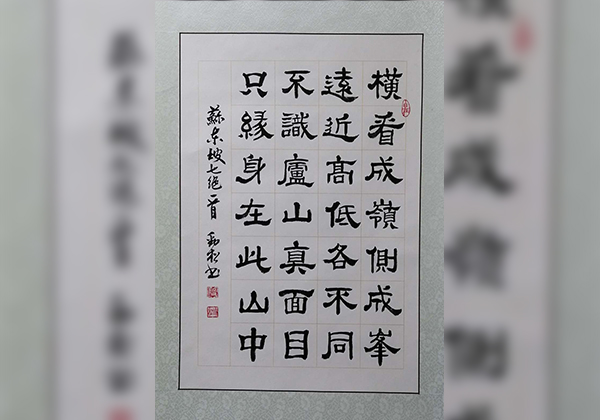 横看成嶺側成峯
遠近髙低各不同
不識廬山真面目
只緣身在此山中
蘇東坡七绝一首 勁松书